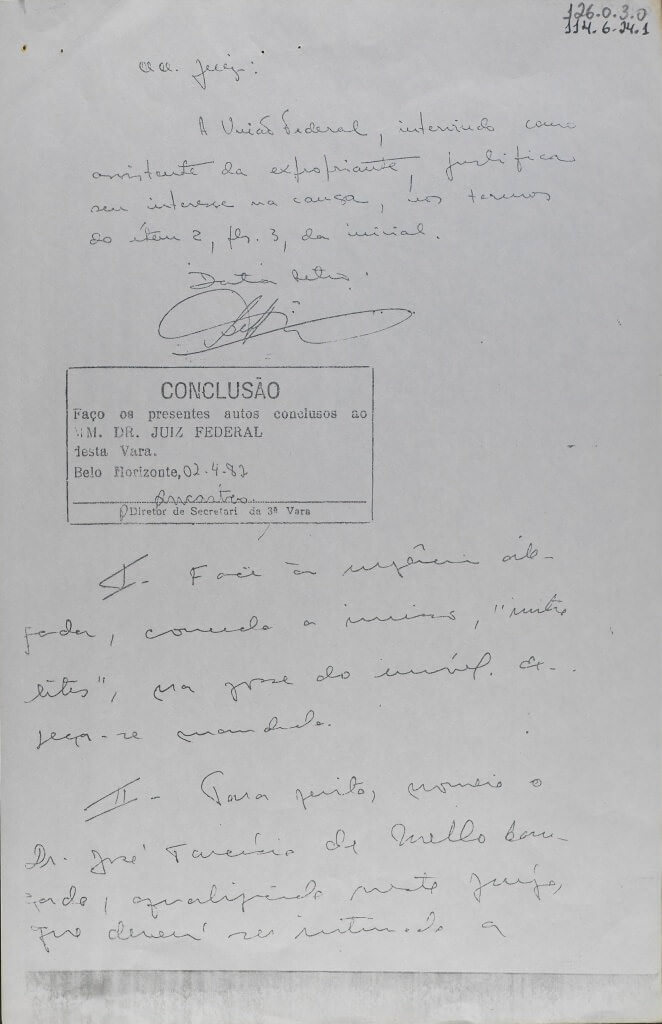 126.0.3.0
114.6.24.1
A União Federal, intervindo como
assistente da expropriante, justifica
seu interesse na causa, nos termos
do ítem 2, fls. 3, da inicial.
Data retro.
CONCLUSÃO
Faço os presentes autos conclusos ao
MM. DR. JUIZ FEDERAL
desta Vara.
Belo Horizonte, 02-4-82
Diretor de Secretari da 3ª Vara
I - Face à urgência ale-
gada, concedo a imissão, "initio
litis", na posse do imóvel. Ex-
peça-se mandado.
II - Para perito, nomeio o
Dr. José Tarcísio de Mello
qualificado neste Juízo,
que deverá ser intimado a